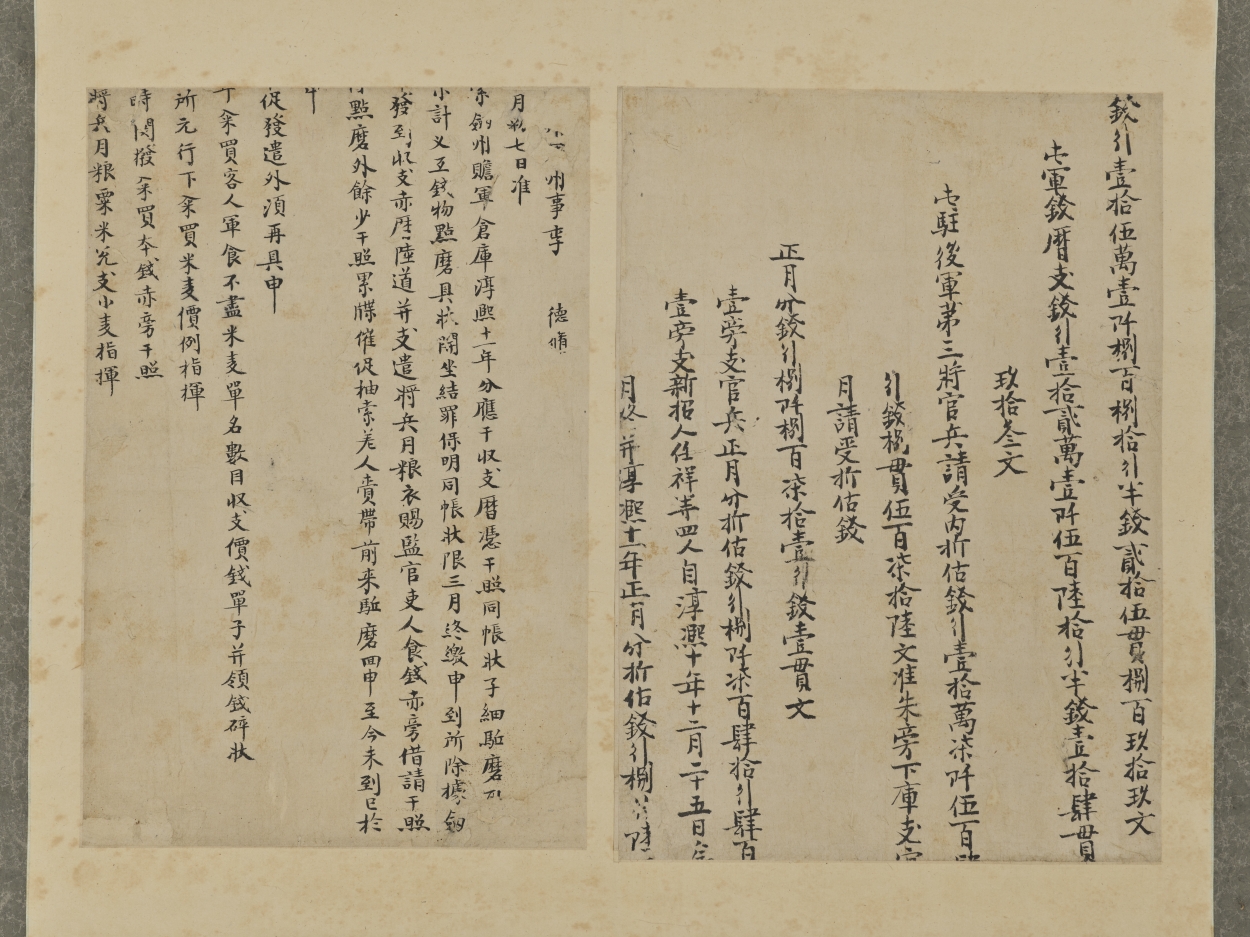 錢引壹拾伍萬壹阡捌百捌拾引半錢貳拾伍貫捌百玖拾玖文
屯軍錢曆支錢引壹拾貳萬壹阡伍百陸拾引半錢壹拾肆貫
玖拾叁文
屯駐後軍第三將官兵請受內折估錢引壹拾萬柒阡伍百
引錢捌貫伍百柒拾陸文准朱旁下庫支
月請受折估錢
正月分錢引捌阡捌百柒拾壹引錢壹貫文
壹旁支官兵正月分折估錢引捌阡柒百肆拾引肆百
壹旁支新招人任祥等四人自淳熙十年十二月二十五日
月終并淳熙十一年正月分折估錢引捌
州事李 德脩
月初七日准
劒州贍軍倉庫淳熙十一年分應干収支曆憑干照同帳狀子細駈磨
計义互錢物點磨具狀開坐結罪保明同帳狀限三月終繳申到所除據劒
發到収支赤曆一陸道并支遣將兵月粮衣賜監官吏人食錢赤旁借請干照
點磨外餘少干照累牒催促抽索差人賫帶前来駈磨回申至今未到已於
促發遣外須再具申
籴買客人軍食不盡米麦單名數目収支價錢單子并領錢碎狀
所元行下籴買米麦價例指揮
時閒撥籴買本錢赤旁干照
將兵月粮粟米兊支小麦指揮